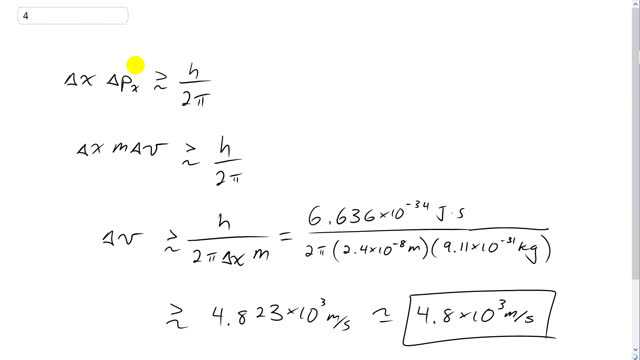 4
Δx Δpₓ ≳ h/2π
Δx mΔv ≳ h/2π
Δv ≳ h/(2πΔx m) = 6.636×10⁻³⁴ J·s/(2π(2.4×10⁻⁸m)(9.11×10⁻³¹kg))
≳ 4.823×10³ m/s ≃ 4.8×10³ m/s